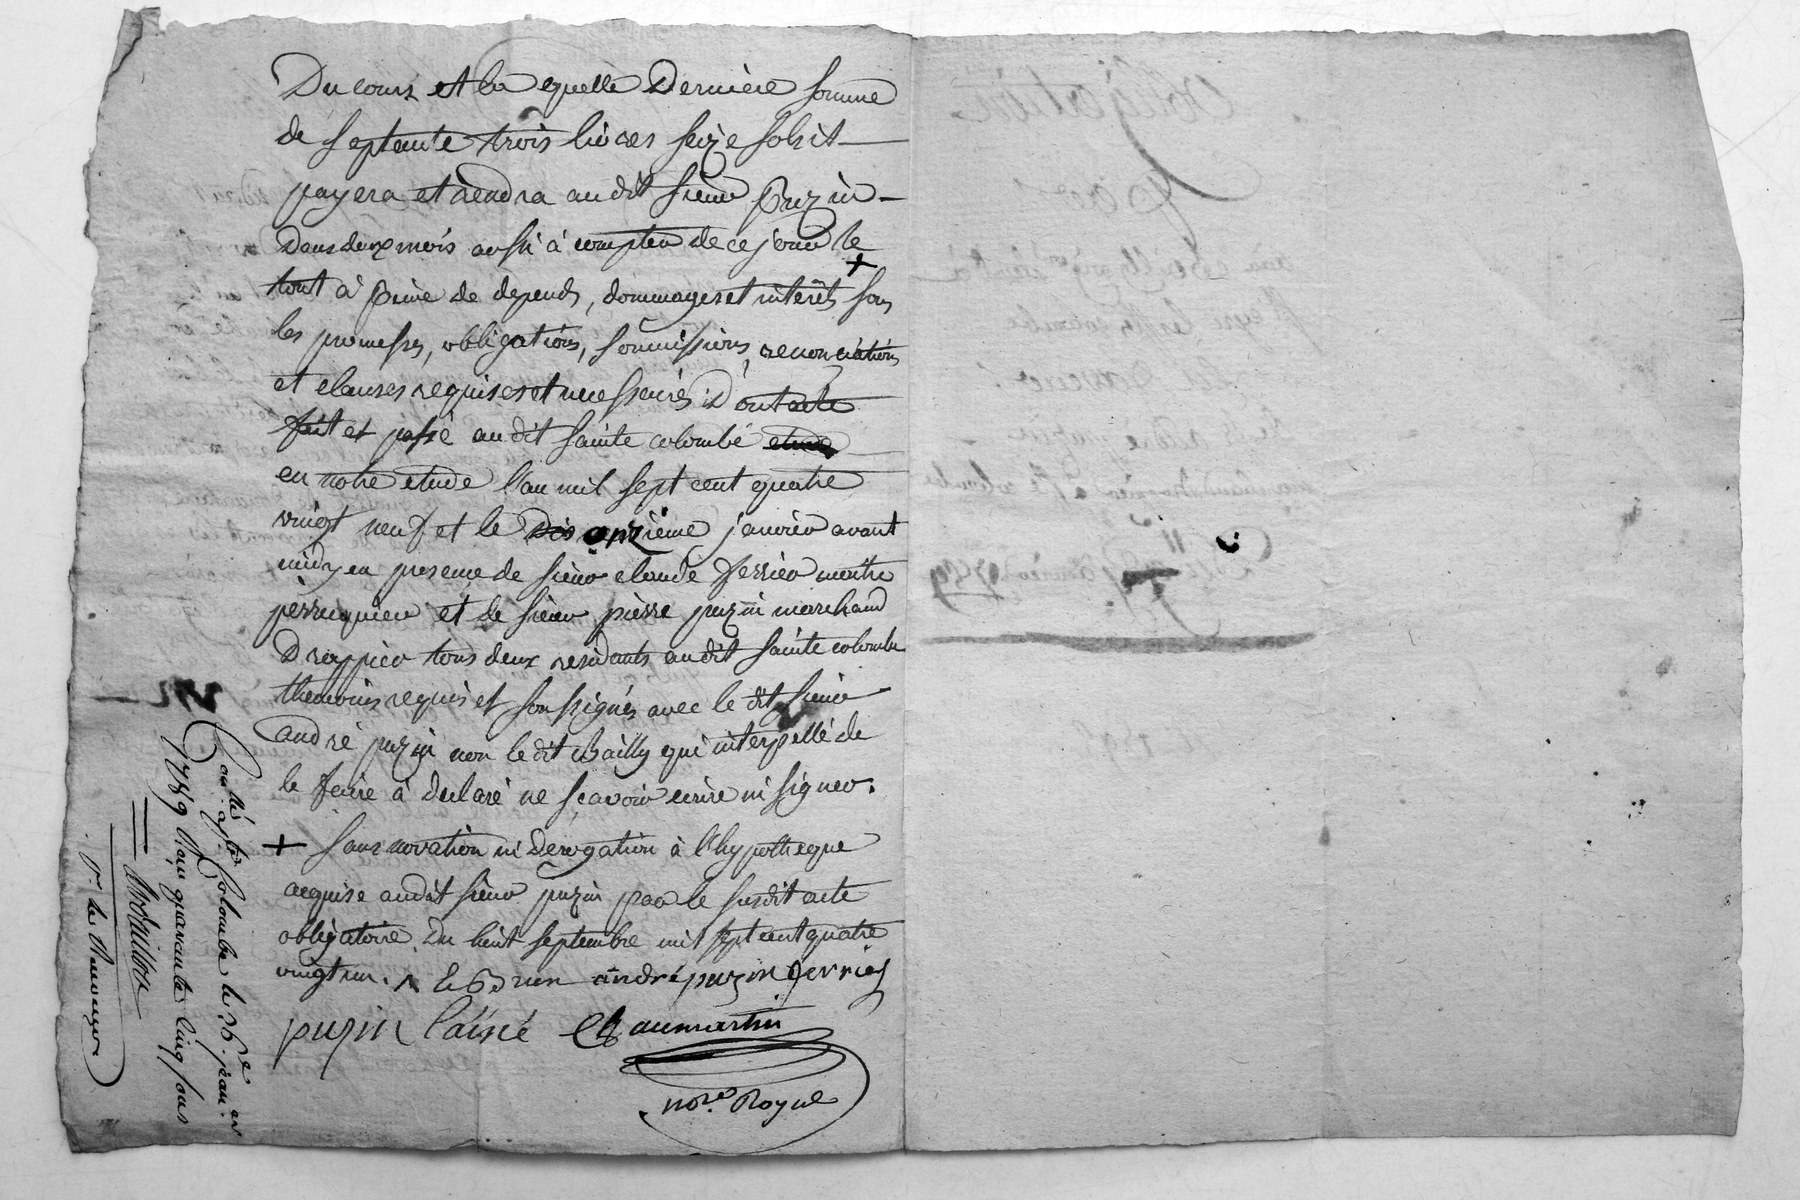 Du cours et la quelle Derniere somme
de septante trois livres seize sols it
payera et rendra au dit sieur Puzin
Dans deux mois aussi à compter de ce jour le
+
tout à peine de depends, dommages et interêts sous
les promesses, obligations, soumissions, renonciations
et clauses requises et necessaires Dont acte
fait et passé au dit sainte colombe
en notre etude l'an mil sept cent quatre
vingt neuf et le Dix onzieme janvier avant
midy en presence de sieur claude ferrier maitre
perruquier et de sieur pierre puzin marchand
Drappier tous deux residants au dit sainte colombe
themoins requis et soussignés avec le dit sieur
andré puzin non le dit Bailly qui interpellé de
le faire à declaré ne sçavoir ecrire ni signer.
+ sans novation ni derogation à l'hypotheque
acquise audit sieur puzin par le susdit acte
obligatoire Du huit septembre mil sept cent quatre
vingt un. andré puzin ferrier
puzin l'ainé Chaumartin
nore. Royal
Con.llé à ste Colombe le 26e jan. er
1789 Reçu quarante cinq sous